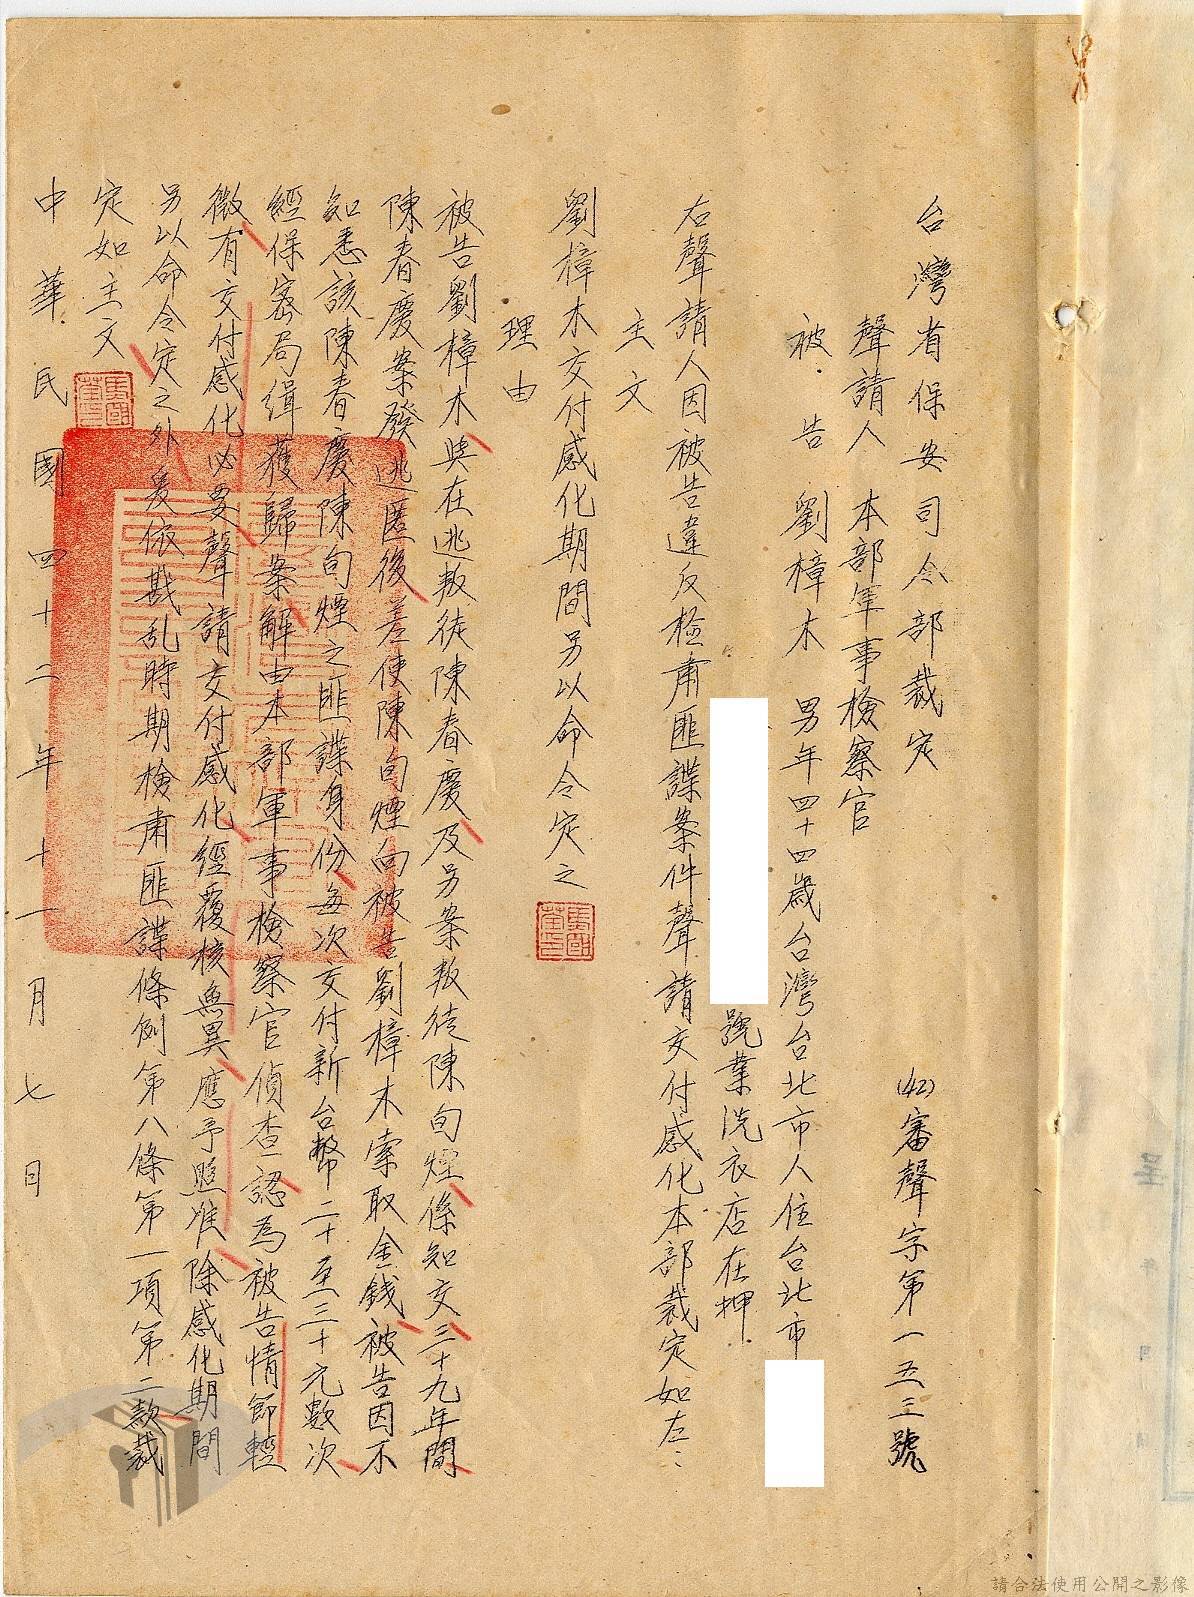 台灣省保安司令部裁定
(42)審聲字第一五三號
聲請人　本部軍事檢察官
被告　劉樟木　男年四十四歲台灣台北市人住台北市
號業洗衣店在押
右聲請人因被告違反檢肅匪諜案件聲請交付感化本部裁定如左：
主文
劉樟木交付感化期間另以命令定之
理由
被告劉樟木與在逃叛徒陳春慶及另案叛徒陳旬煙係知交三十九年間
陳春慶案發逃匿後差使陳旬煙向被告劉樟木索取金錢被告因不
知悉該陳春慶陳旬煙之匪諜身份每次交付新台幣二十至三十元數次
經保密局緝獲歸案解由本部軍事檢察官偵查認為被告情節輕
微有交付感化必要聲請交付感化經覆核無異應予照准除感化期間
另以命令定之外爰依戡乱時期檢肅匪諜條例第八條第一項第二款裁
定如主文
中華民國四十二年十一月七日
呈
請合法使用公開之影像